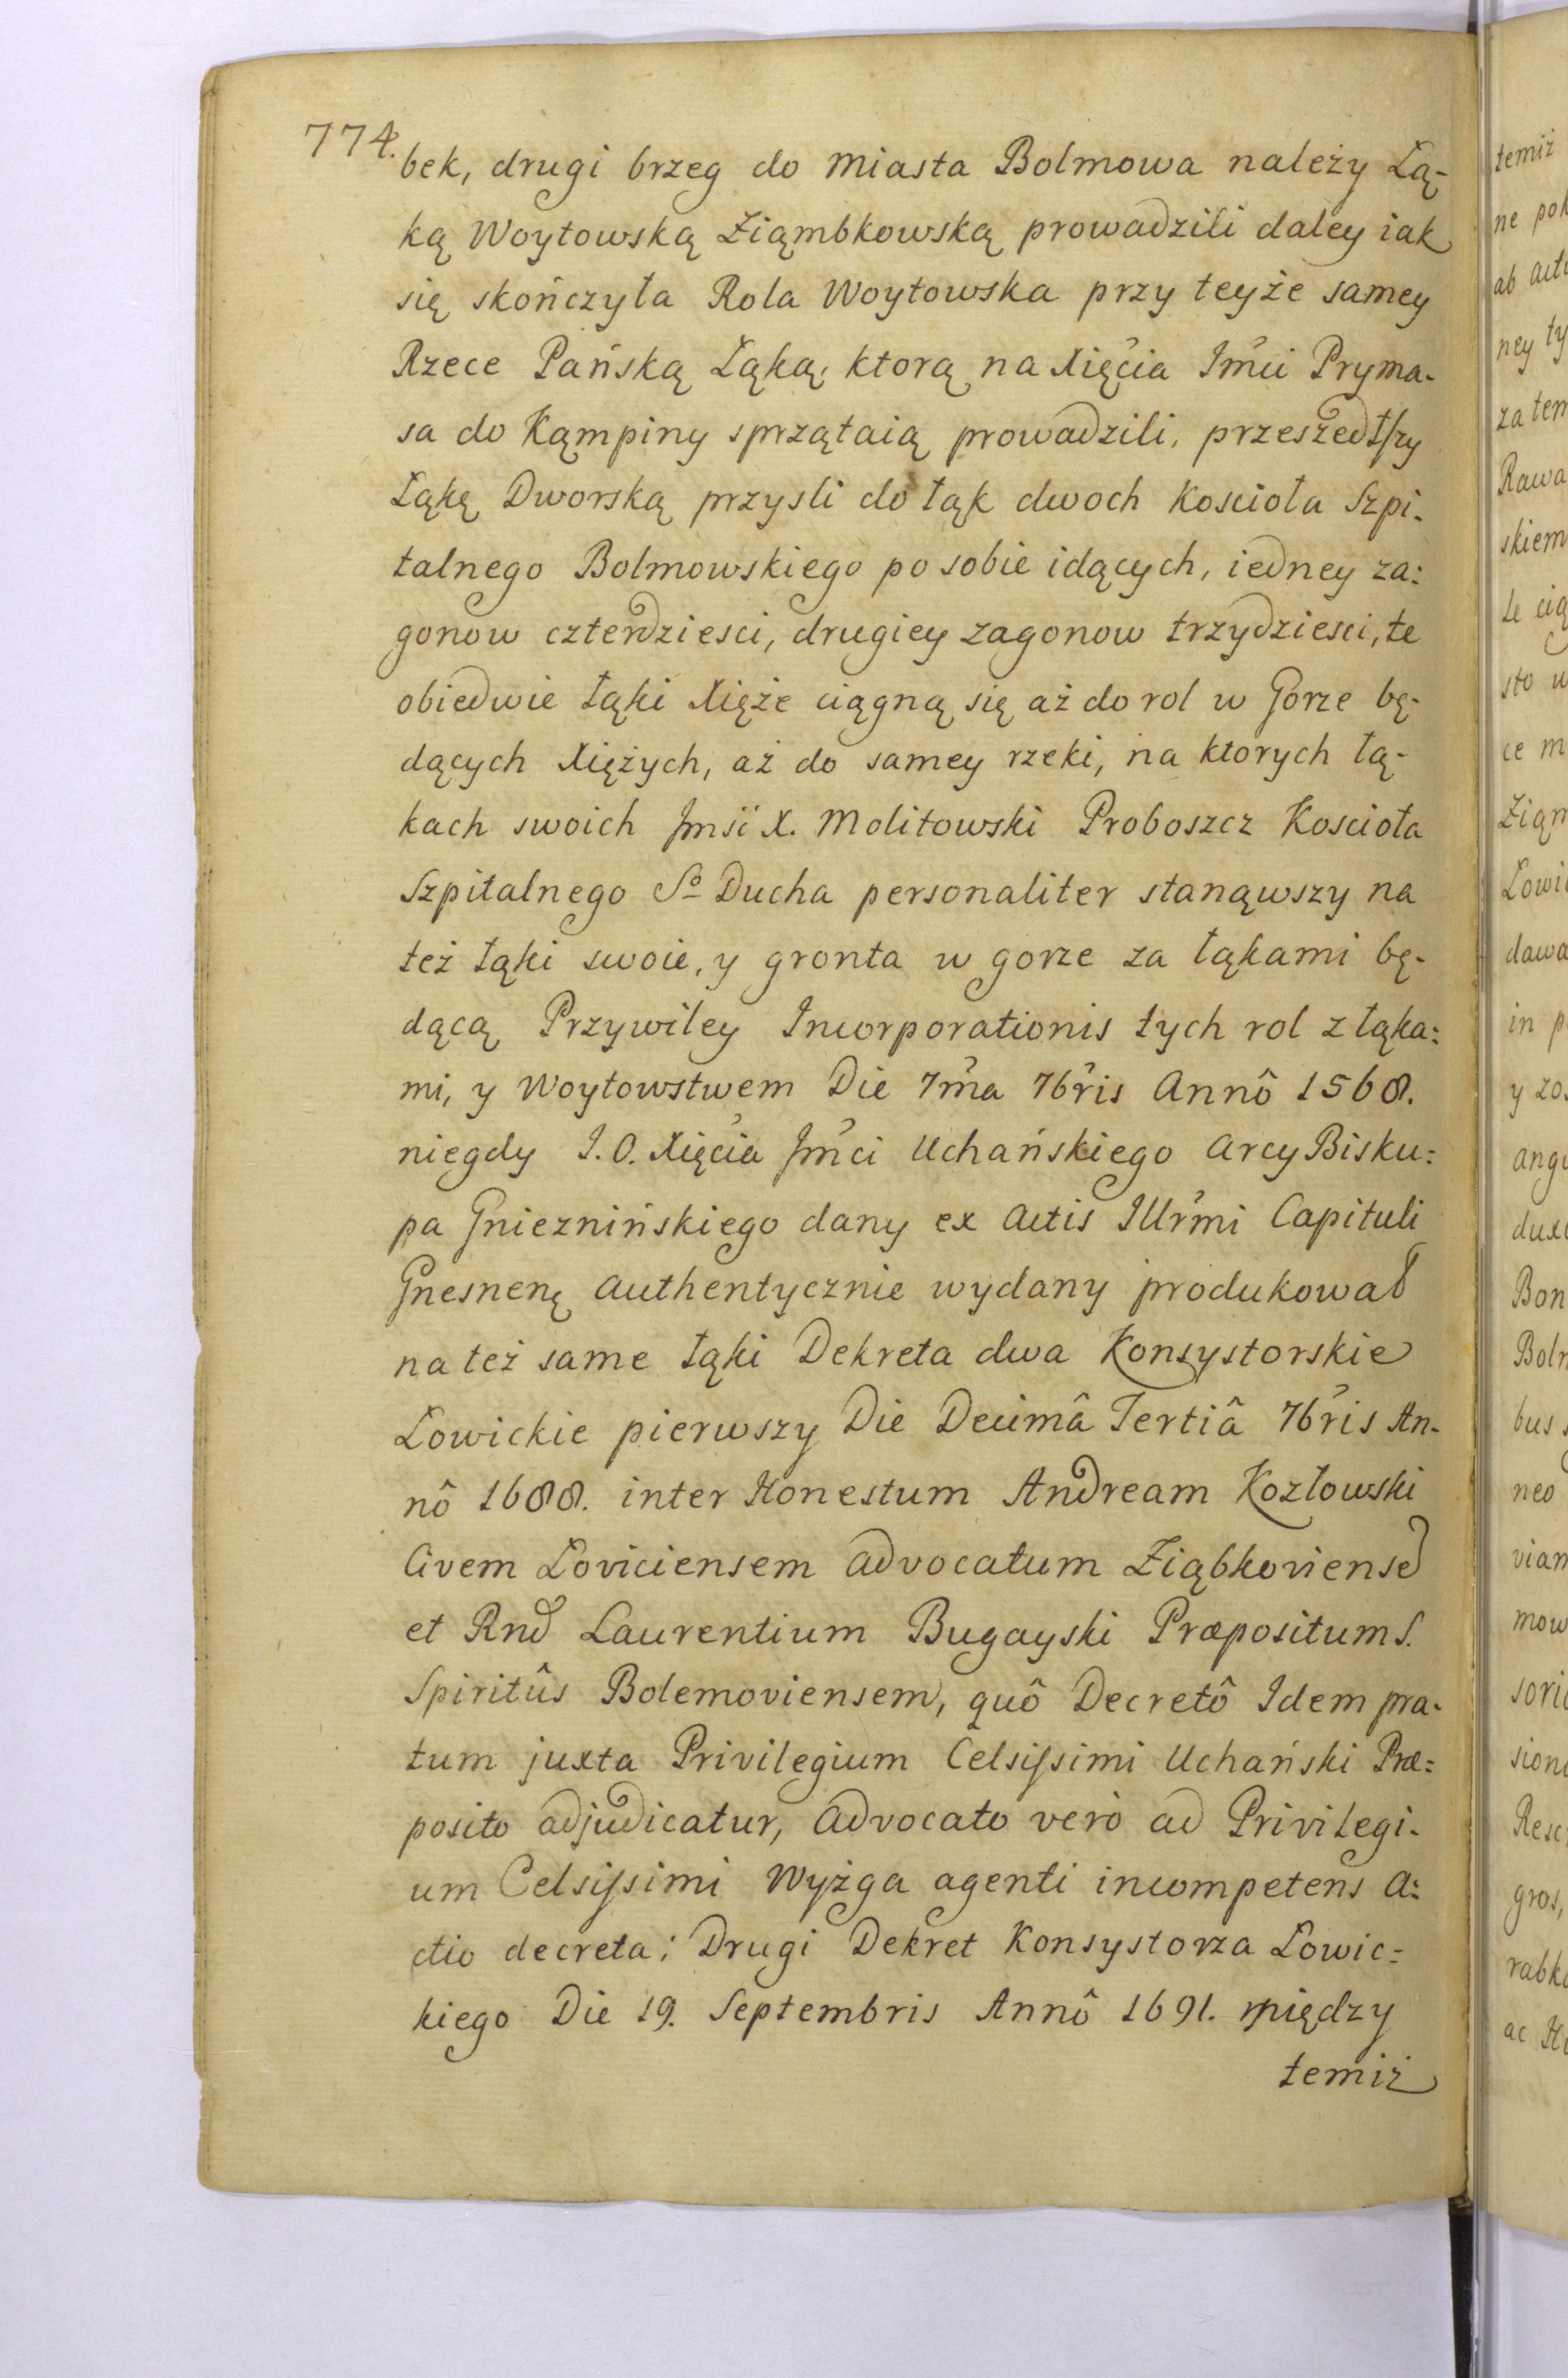 774.
bek, drugi brzeg do Miasta Bolmowa należy Łą-
ką Woytowską Ziąmbkowską prowadzili daley iak
się skończyła Rola Woytowska przy teyże samey
Rzece Pańską Łąką, ktorą na Xięcia Jm̃ci Pryma-
sa do Kąmpiny sprzątaią prowadzili, przeszedłszy
Łąkę Dworską przysli do łąk dwoch Koscioła Szpi-
talnego Bolmowskiego po sobie idących, iedney za:
gonow czterdziesci, drugiey zagonow trzydziesci, te
obiedwie łąki Xięże ciągną się aż do rol w Gorze bę-
dących Xiężych, aż do samey rzeki, na ktorych łą-
kach swoich Jmsći X. Molitowski Proboszcz Koscioła
Szpitalnego Sº Ducha personaliter stanąwszy na
też łąki swoie, y gronta w gorze za łąkami bę-
dącą Przywiley Incorporationis tych rol z łąka:
mi, y Woytowstwem Die 7m̃a 7br̃is Annô 1568.
niegdy J. O. Xięcia Jm̃ci Uchańskiego Arcy Bisku:
pa Gnieznińskiego dany ex Actis Illr̃mi Capituli
Gnesnenę authentycznie wydany produkował
na też same łąki Dekreta dwa Konsystorskie
Łowickie pierwszy Die Decimâ Tertiâ 7br̃is An-
nô 1688. inter Honestum Andream Kozłowski
Civem Loviciensem Advocatum Ziąbkoviensẽ
et Rnd Laurentium Bugayski Præpositum S.
Spiritûs Bolemoviensem, quô Decretô Idem pra-
tum juxta Privilegium Celsissimi Uchański Præ:
posito adjudicatur, Advocato verò ad Privilegi-
um Celsissimi Wyżga agenti incompetens A:
ctio decreta; Drugi Dekret Konsystorza Łowic:
kiego Die 19. Septembris Annô 1691. między
temiż
temiż
ne pok
ab acto
ney ty
za tem
Rawa
skiem
le cią
sto w
ce m
Ziąm
Łowi
dawa
in p
y zos
angu
duxi
Bon
Boln
bus s
neo
viam
mow
sorio
sion
Resc
gros,
rabko
ac H